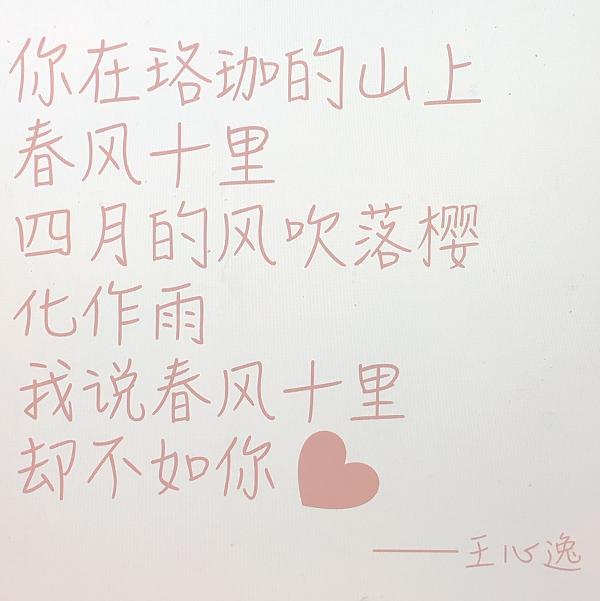 你在珞珈的山上
春风十里
四月的风吹落樱
化作雨
我说春风十里
却不如你
——王心逸